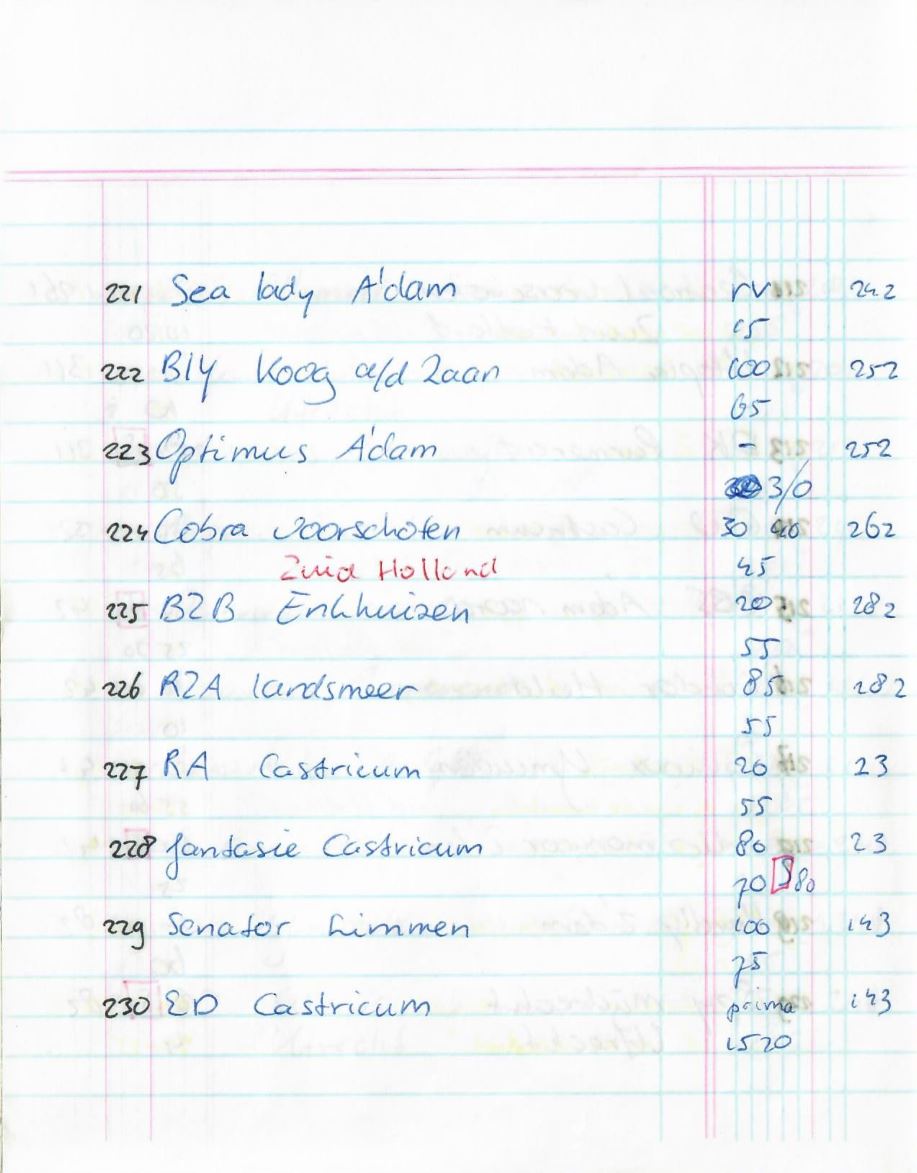 221 Sea lady A'dam rv 242
15
222 BIY Koog a/d Zaan 100 252
65
223 Optimus A'dam - 252
3/0
224 Cobra Voorschoten 30 262
Zuid Holland 45
225 B2B Enkhuizen 20 282
55
226 R2A landsmeer 85 282
55
227 RA Castricum 20 23
55
228 fantasie Castricum 80 23
70 S 80
229 Senator Limmen 100 143
75
230 ED Castricum prima 143
15 20